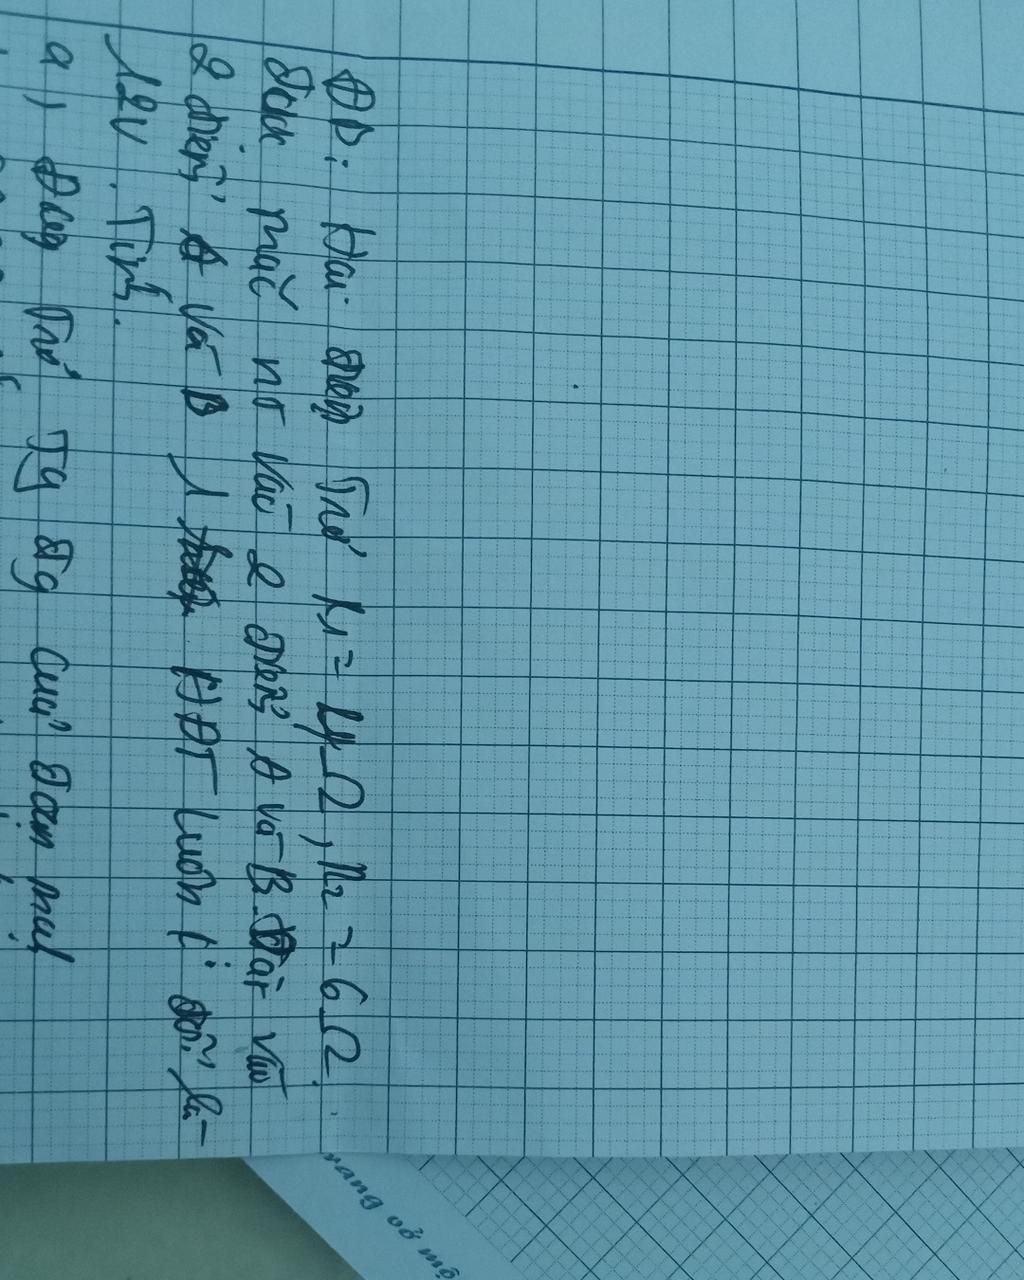 ĐD: Hai điện trở R1 = 4Ω, R2 = 6Ω.
được mắc nt vào 2 điểm A và B. Đặt vào
2 điểm A và B 1 HĐT luôn k đổi là
12V. Tính.
a) Điện trở tg đg của đoạn mạch
rang og mis